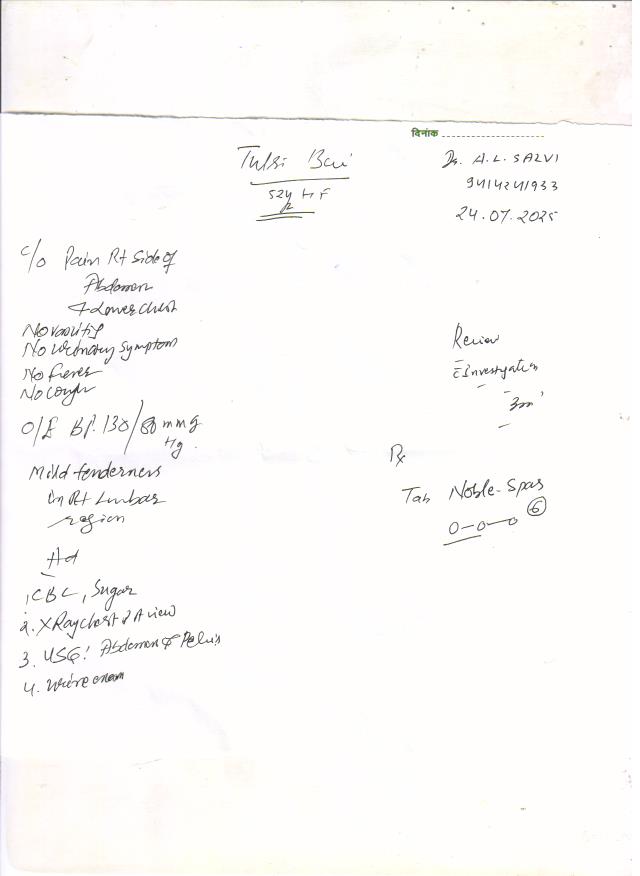 दिनांक
Tulsi Bai
52y H F
Dr. H.L. SALVI
9414241933
24.07.2025
c/o Pain Rt Side of
Abdomen
+ Lower Chest
No vomiting
No Urinary Symptom
No fever
No cough
O/E BP. 130/80 mm
Hg
Mild tenderness
in Rt Lumbar
region
Ad
1. CBC, Sugar
2. X Ray chest PA view
3. USG: Abdomen & Pelvis
4. Urine exam
Review
c Investigation
Rx
Tab Noble-Spas
6
0-0-0